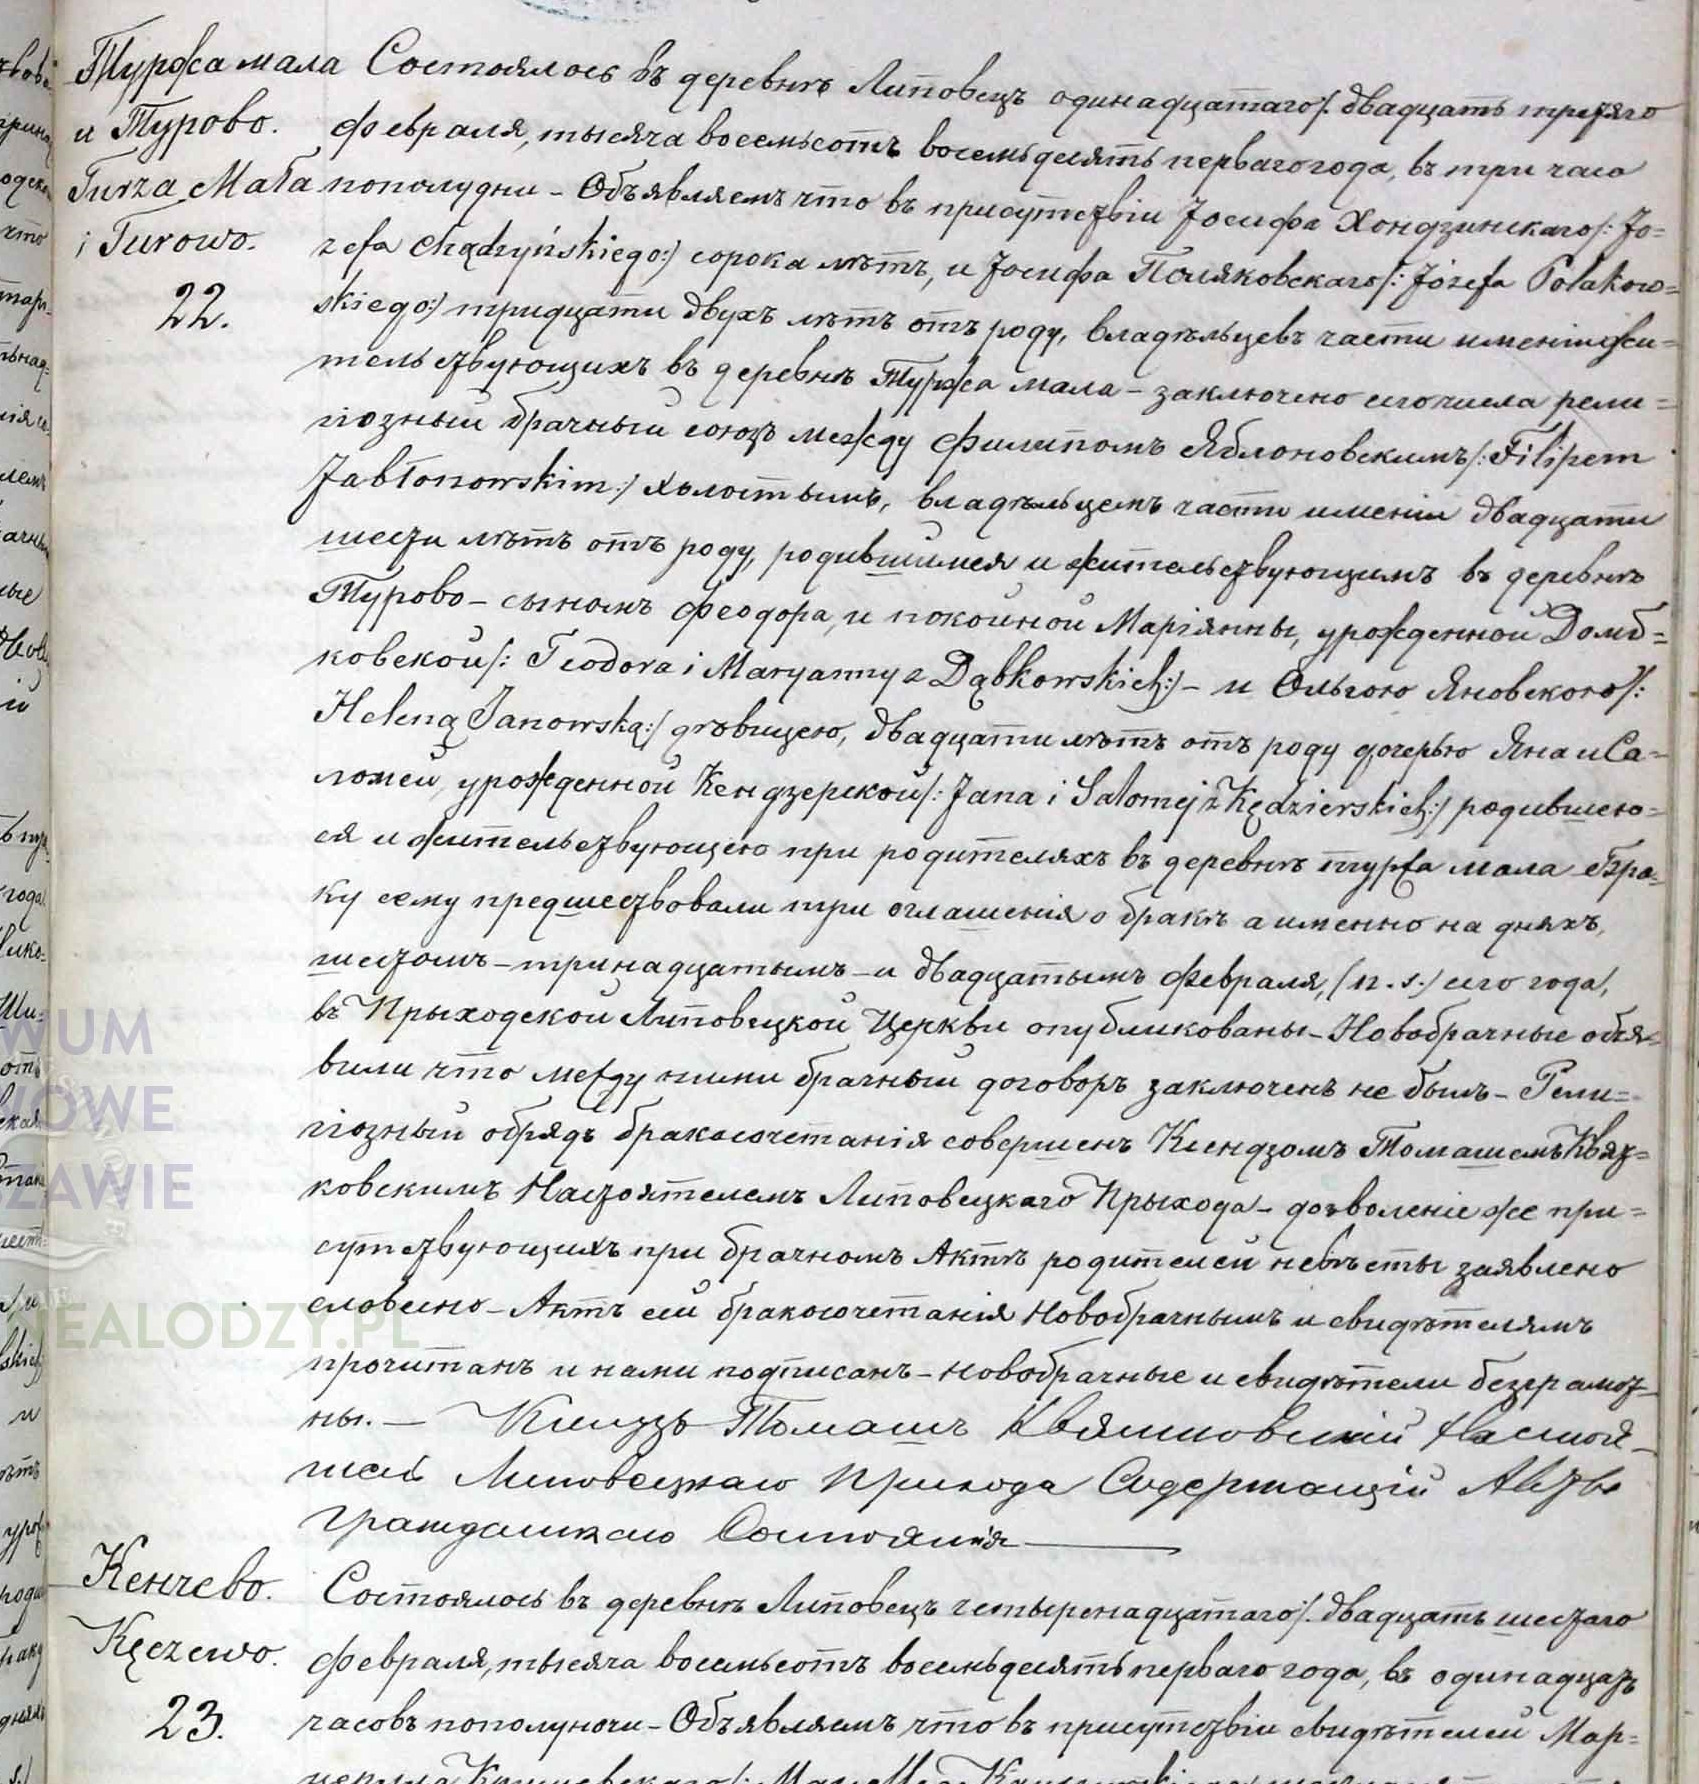 Туржа мала
и Турово.
Turza Mała
i Turowo.
22.
Состоялось въ деревнѣ Липовецъ одинадцатаго/. двадцать третяго
февраля, тысяча восемьсотъ восемьдесять перваго года, въ три часа
пополудни – Объявляемъ что въ присутствіи Іосифа Хондзинскаго/: Jó=
zefa Chądzyńskiego:/ сорока лѣтъ, и Іосифа Поляковскаго/: Józefa Polakow=
skiego:/ тридцати двухъ лѣтъ отъ роду, владѣльцевъ части именія жи=
тельствующихъ въ деревнѣ Туржа мала – заключено сего числа рели=
гіозный брачный союзъ между Филипомъ Яблоновскимъ/: Filipem
Jabłonowskim:/ холостымъ, владѣльцемъ части именія двадцати
шести лѣтъ отъ роду, родившимся и жительствующимъ въ деревнѣ
Турово – сыномъ Феодора, и покойной Маріянны, урожденной Домб=
ковской/: Teodora i Maryanny z Dąbkowskich:/ – и Ольгою Яновскою/:
Heleną Janowską:/ дѣвицею, двадцати лѣтъ отъ роду дочерью Яна и Са=
ломеи, урожденной Кендзерской/: Jana i Salomej z Kędzierskich:/ родившею=
ся и жительствующею при родителяхъ въ деревнѣ туржа мала Бра=
ку сему предшествовали три оглашенія о бракѣ а именно на дняхъ,
шестомъ – тринадцатымъ – и двадцатымъ февраля, /n. s./ сего года,
въ Прыходской Липовецкой Церкви опубликованы – Новобрачные обья=
вили что между ними брачный договоръ заключенъ не былъ – Рели=
гіозный обрядъ бракосочетанія совершенъ Ксендзомъ Томашемъ Квят=
ковскимъ Настоятелемъ Липовецкаго Прыхода – дозволеніе же при=
сутствующихъ при брачномъ Актѣ родителей невѣсты заявлено
словесно – Актъ сей бракосочетанія Новобрачнымъ и свидѣтелямъ
прочитанъ и нами подписанъ – новобрачные и свидѣтели безграмот=
ны. – Ксендзъ Томашъ Квятковскій Настоя=
тель Липовецкаго Прихода Содержащій Акты
Гражданскаго Состоянія
Кенчево.
Kęczewo.
23.
Состоялось въ деревнѣ Липовецъ четыренадцатаго/. двадцать шестаго
февраля, тысяча восемьсотъ восемьдесять перваго года, въ одинадцать
часовъ пополуночи – Объявляемъ что въ присутствіи свидѣтелей Мар=